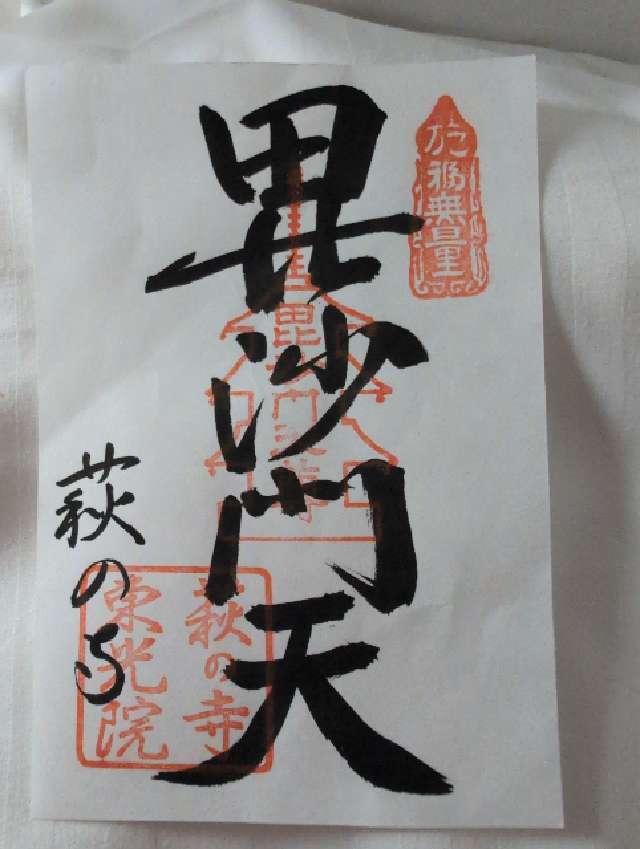 毘沙門天
萩の寺
福無量
毘沙門天
萩の寺
東光院